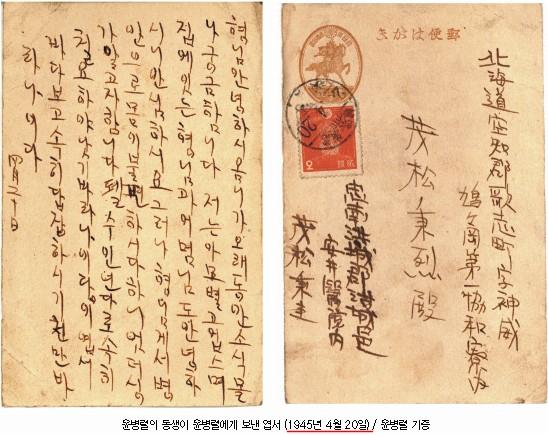 형님 안녕하시옴니가 오래동안 소식 몰
나 궁금하나니다 저는 아모 별고 업스며
집에 잇는 형님과 어머님도 안녕하
시니 안심하시요 그러나 형임게서 병
인으로 몸이 불편하시다하니 엇더신
가 알고자 합니다 될 수 인난다로 속히
치료하야 낫기 바라나이다
바다보고 속히 답접하시기 천만 바
라나니다
四月二十日
郵便はがき
北海道空知郡歌志町字神威
鳩ヶ岡第一協和寮内
茂松秉烈殿
忠南洪城郡洪城邑
安井醫院内
茂松秉圭
윤병렬이 동생이 윤병렬에게 보낸 엽서 (1945년 4월 20일) / 윤병렬 기증